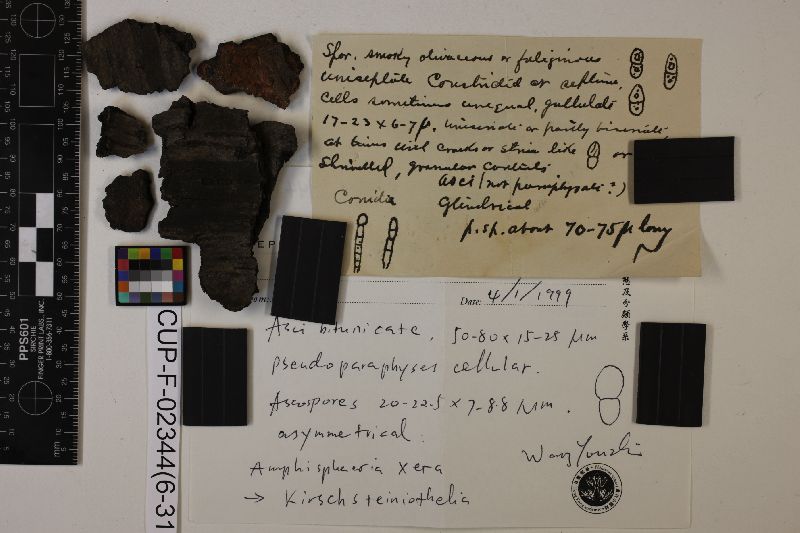 Spor. smoky olivaceous or fuliginous
uniseptate Constricted at septum,
cells sometimes unequal, guttulate
17-23 x 6-7µ, uniseriate or partly biseriate,
at times with cracks or striae like or
Shrivelled, granular contents
asci (not paraphysate?)
Conidia
Cylindrical
p.sp. about 70-75µ long
Date: 4/1/1999
Asci bitunicate, 50-80 x 15-25 µm
pseudoparaphyses cellular.
Ascospores 20-22.5 x 7-8.8 µm.
asymmetrical.
Amphisphaeria xera
→ Kirschsteiniothelia
CUP-F-02344(6-31
PPS601
SIRCHIE
FINGER PRINT LABS, INC.
1-800-356-7311
mm